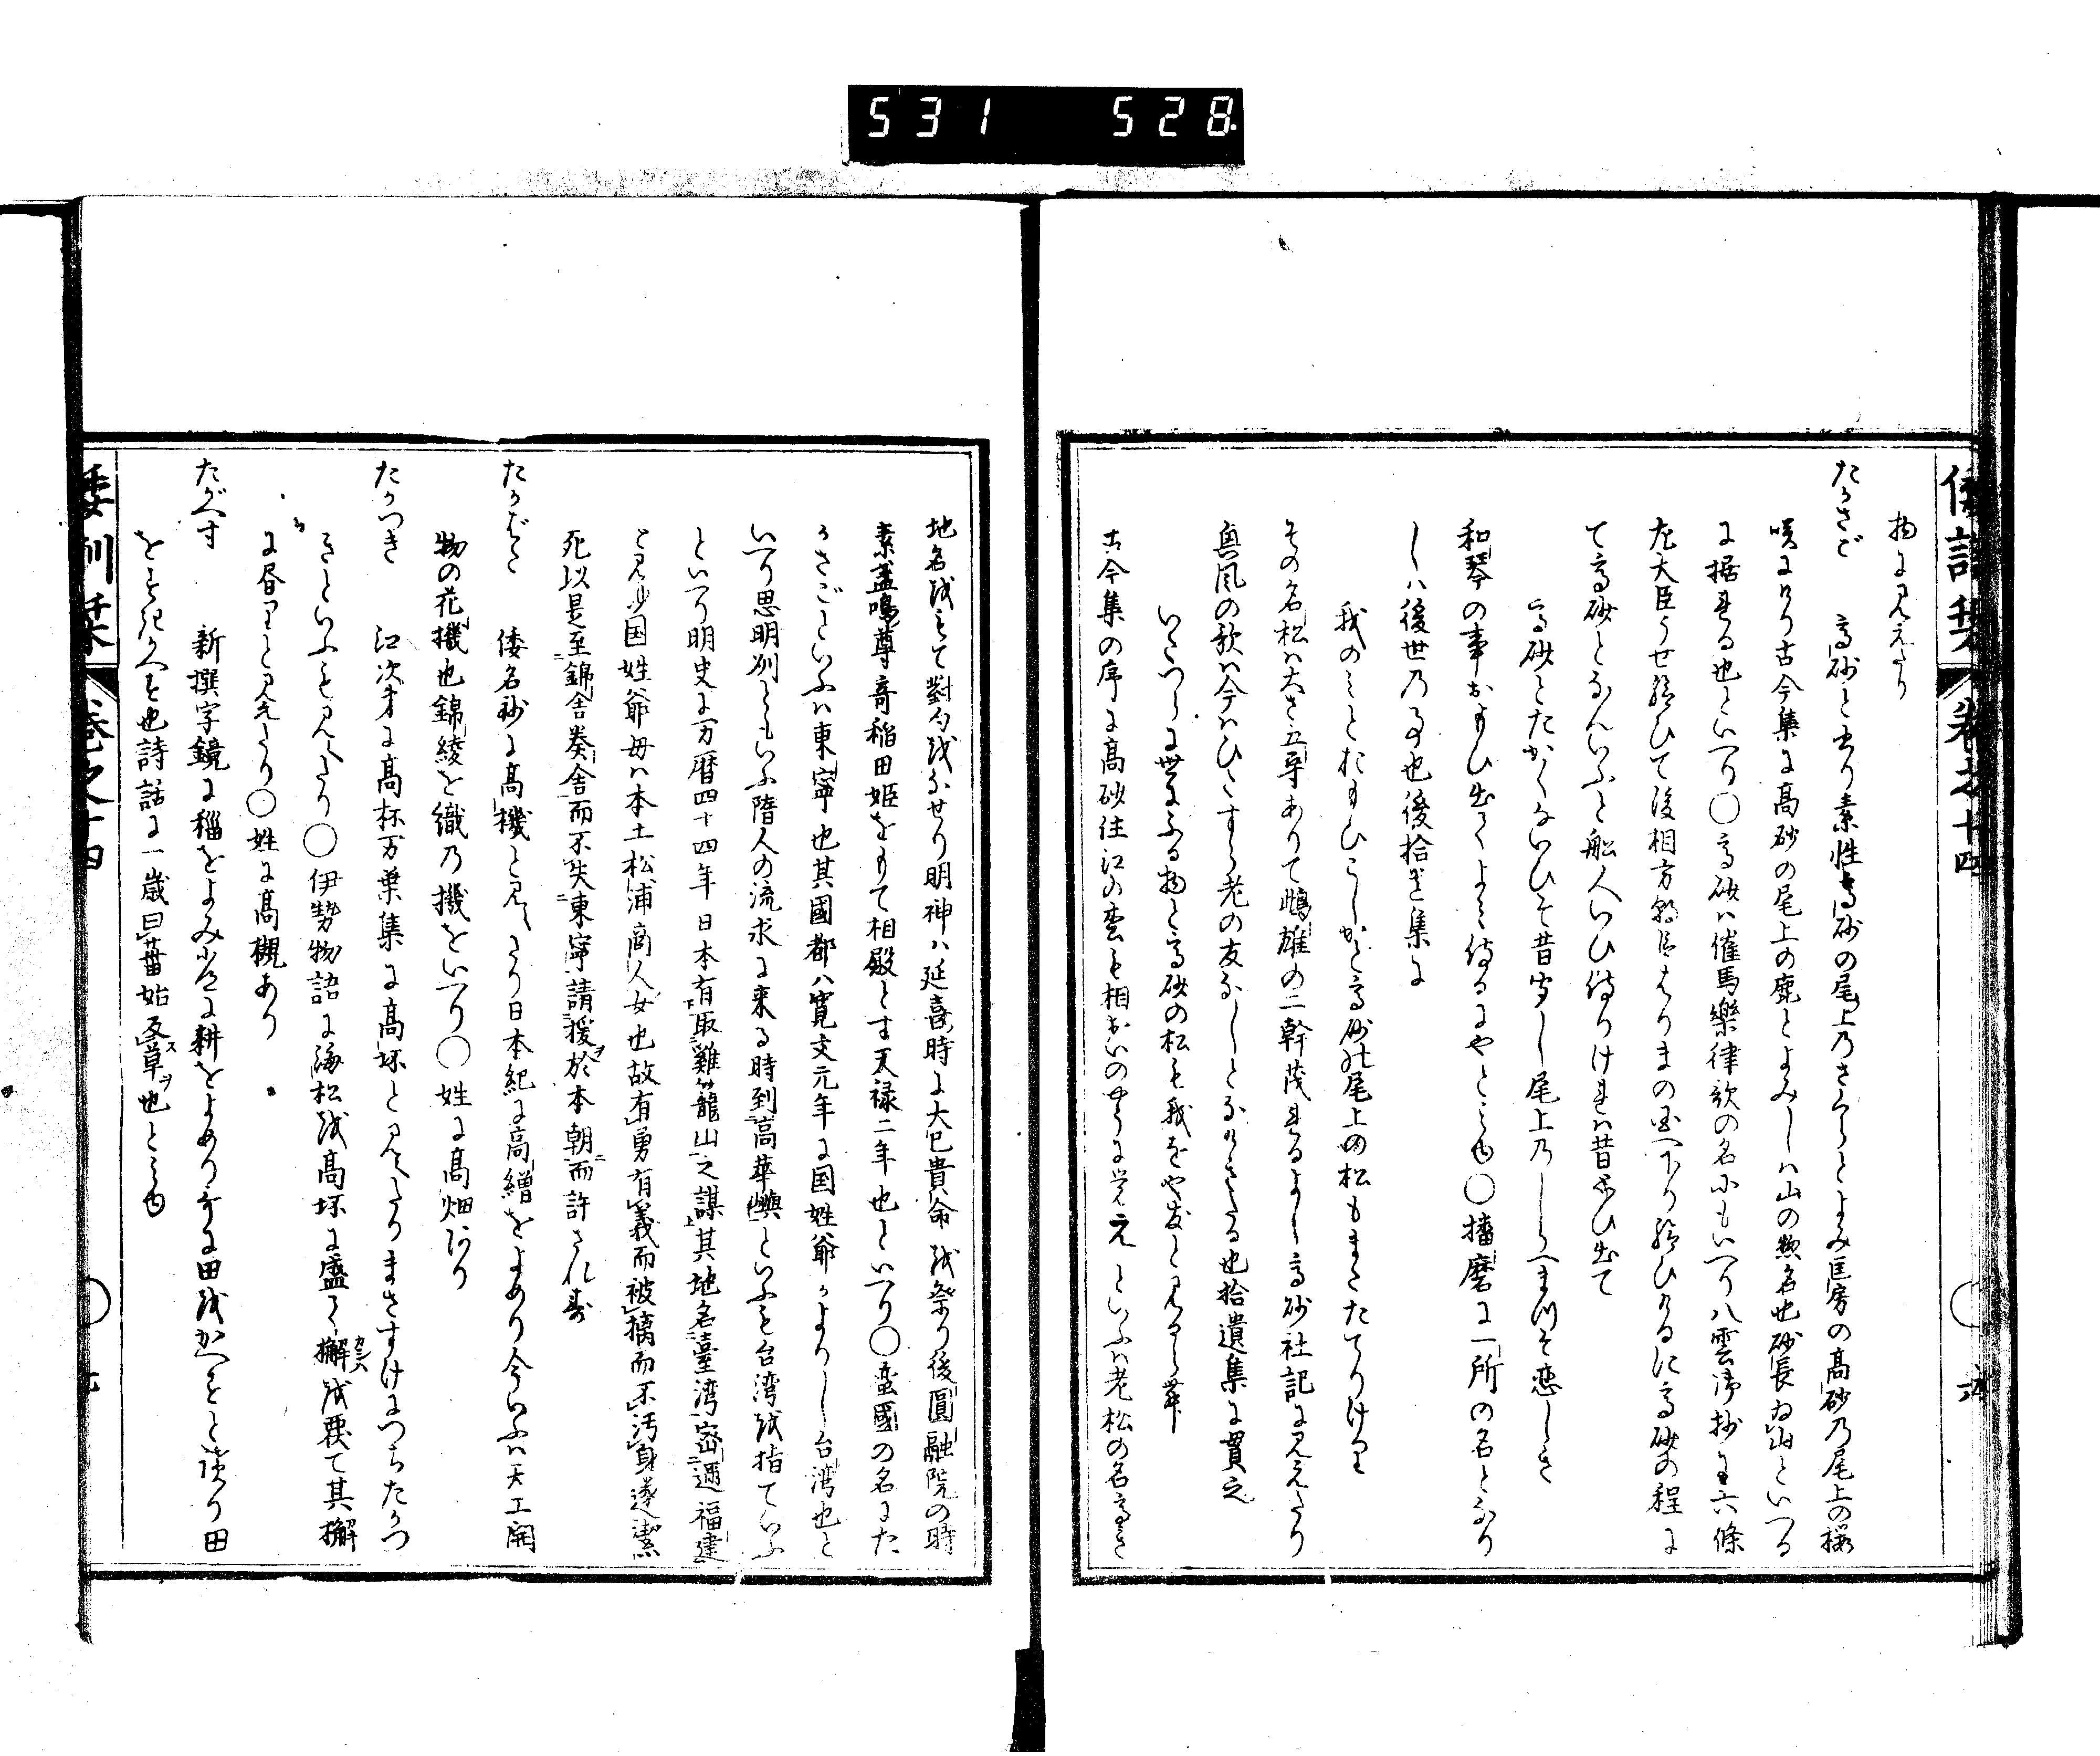 531 528
倭訓栞 巻之十四
物に見えたり
たかさご 高砂と書り素性高砂の尾上のさくらとよみ匡房の高砂乃尾上の櫻
咲にけり古今集に高砂の尾上の鹿とよみしハ山の惣名也砂長為山といへる
に据れる也といへり○高砂ハ催馬樂律歌の名にもいへり八雲御抄に六條
左大臣うせ給ひて後相方朝臣はりまの国へ下り給ひけるに高砂の程に
て高砂となんいふと船人いひ侍りけれハ昔思ひ出て
高砂とたかくないひそ昔聞し尾上乃しらへまつそ恋しき
和琴の事おもひ出てよミ侍るにやとミゆ○播磨に一所の名となり
しハ後世乃事也後拾遺集に
我のミとおもひこしかと高砂の尾上の松もまたたてりけり
その名松ハ大さ五尋ありて雌雄の二幹茂れるよし高砂社記に見えたり
興風の歌ハ今ハひたすら老の友なしとなけきたる也拾遺集に貫之
いたつらに世にふる物と高砂の松も我をや友と見るらん
古今集の序に高砂住江の松も相おいのやうに覚え といふハ老松の名高き
地名をもて對句をなせり明神ハ延喜時に大已貴命を祭り後圓融院の時
素盞嗚尊奇稲田姫をもて相殿とす天禄二年也といへり○蛮國の名にた
かさごといふハ東寧也其國都ハ寛文元年に国姓爺かよりし台湾也と
いへり思明州ともいふ隋人の流求に来る時到高華嶼といふも台湾を指ていふ
といへり明史に万暦四十四年日本有取雞籠山之謀其地名臺湾密邇福建
と見ゆ国姓爺母ハ本土松浦商人女也故有勇有義而被擒而不汚身遂潔
死以是至錦舎奏舎而不失東寧請援於本朝而許されす
たかばた 倭名抄に高機と見へたり日本紀に高繒をよめり今いふハ天工開
物の花機也錦綾を織乃機をいへり○姓に高畑あり
たかつき 江次第に高杯万葉集に高坏と見へたりまさすけにつちたかつ
きといふも見へたり○伊勢物語に海松を高坏に盛て檞を覆て其檞
に書りと見えたり○姓に高槻あり
たがへす 新撰字鏡に穪をよみ又に耕をよめり哥に田をかへすと讀り田
をすきかへす也詩詁に一歳曰菑始反草也とミゆ
倭訓栞 巻之十四